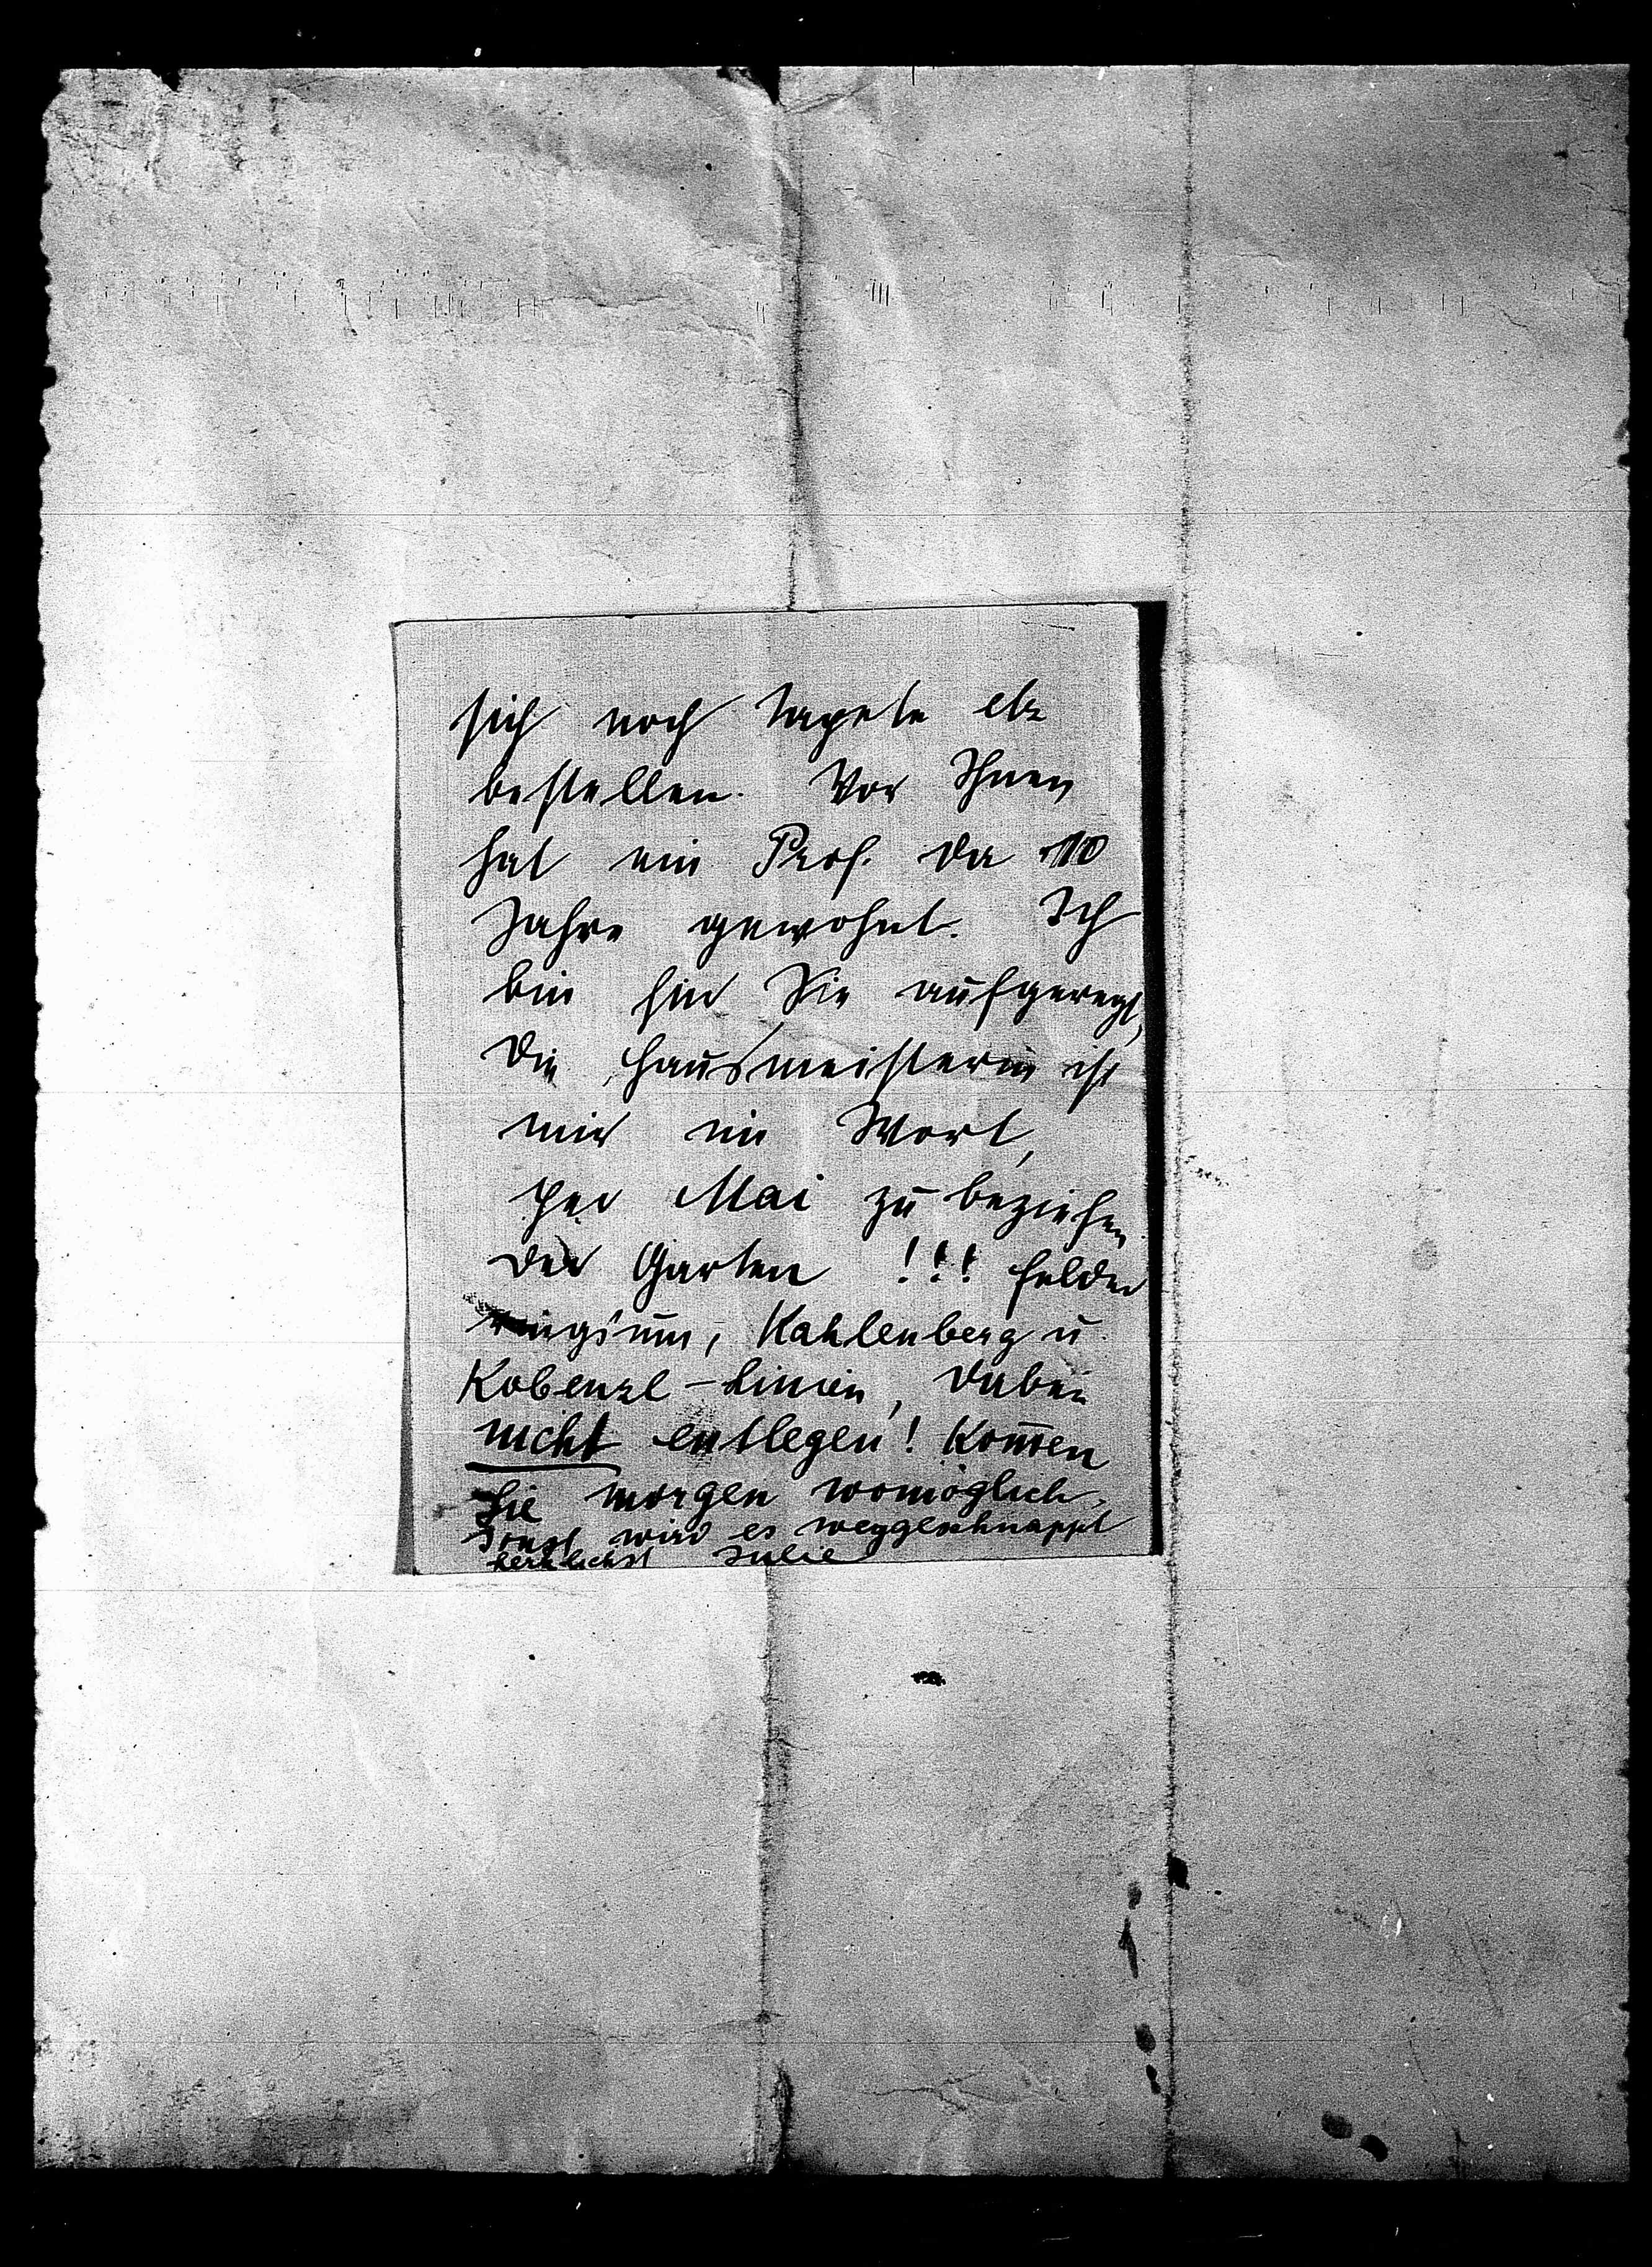 sich noch Tapete etz
bestellen. Vor Ihnen
hat ein Prof. da 10
Jahre gewohnt. Ich
bin für Sie aufgeregt,
die Hausmeisterin ist
mir im Wort,
per Mai zu beziehen
der Garten !!! Felder
ringsum, Kahlenberg u.
Kobenzl-Linien, dabei
nicht entlegen! Kom̄en
Sie morgen womöglich,
sonst wird es weggeschnappt
herzlichst Julie